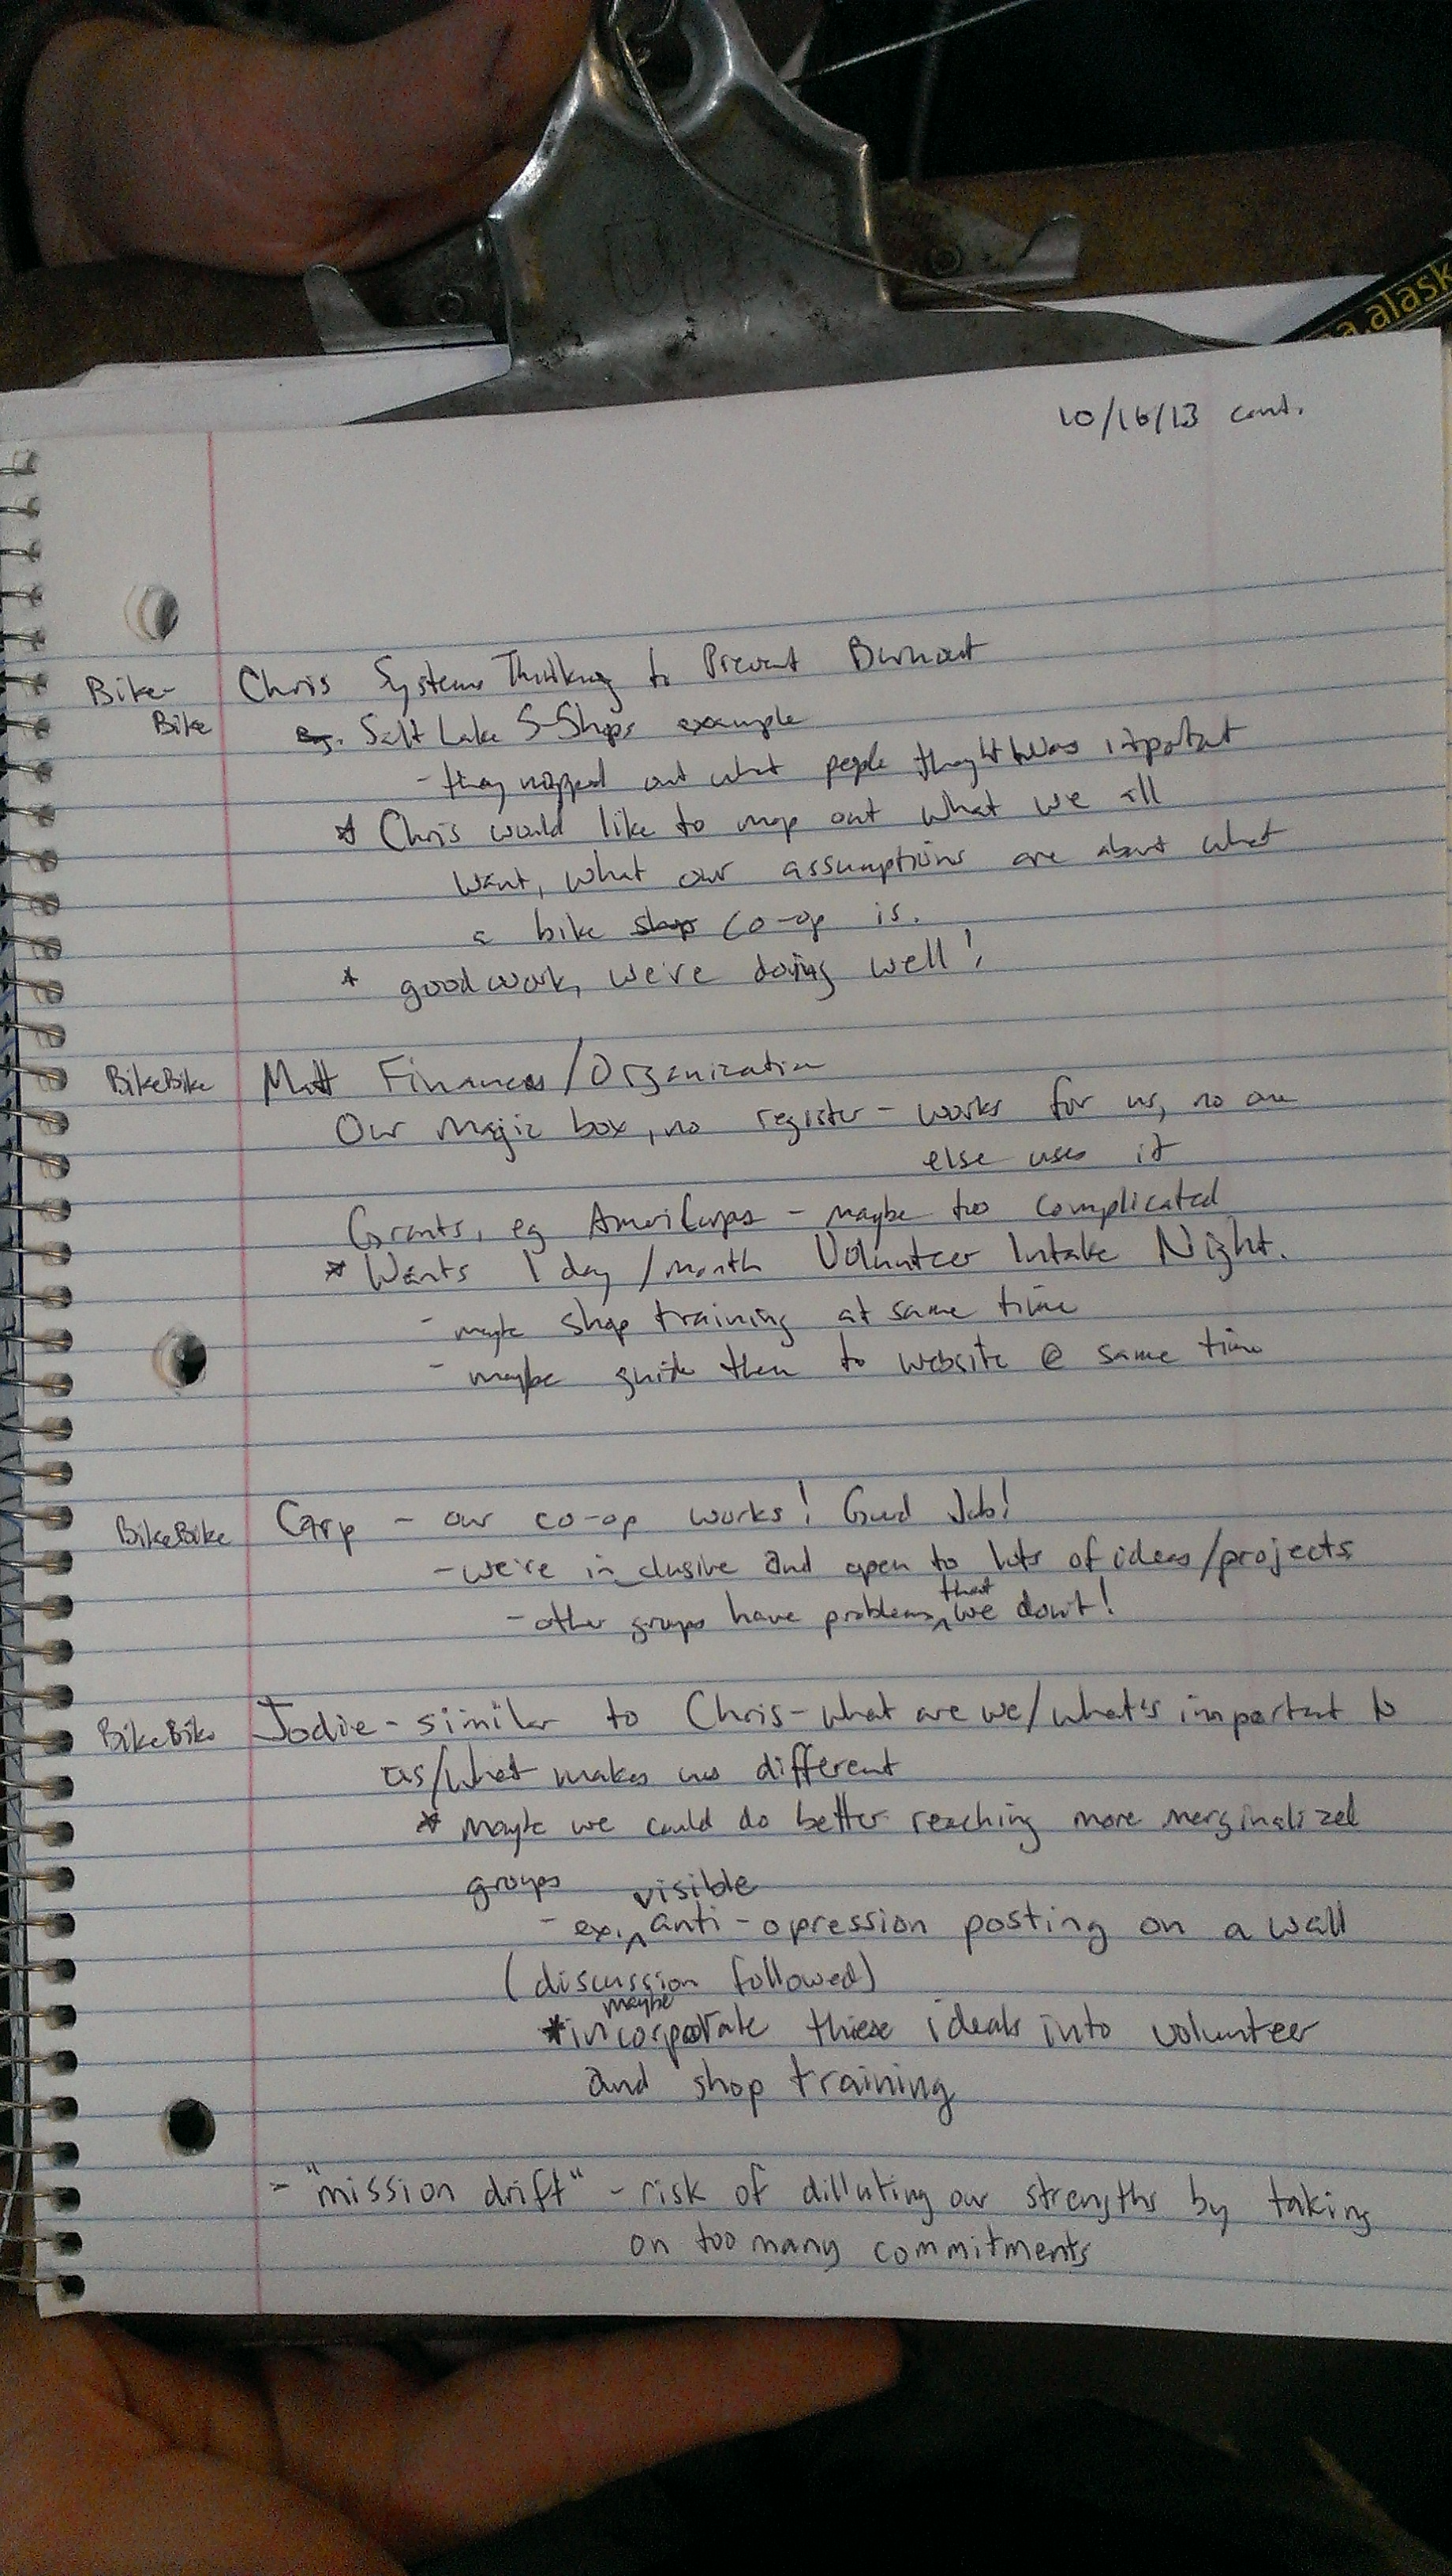 a.alask
10/16/13 cont.
Bike- Chris Systems Thinking to Prevent Burnout
Bike eg. Salt Lake 5-Shops example
- they mapped out what people thought was important
* Chris would like to map out what we all
want, what our assumptions are about what
a bike shop co-op is.
* good work, we're doing well!
BikeBike Matt Finances/Organization
Our magic box, no register - works for us, no one
else uses it
Grants, eg AmeriCorps - maybe too complicated
* Wants 1 day/month Volunteer Intake Night.
- maybe shop training at same time
- maybe guide them to website @ same time
BikeBike Carp - our co-op works! Good Job!
- we're inclusive and open to lots of ideas/projects
- other groups have problems that we don't!
BikeBike Jodie - similar to Chris - what are we/what's important to
us/what makes us different
* maybe we could do better reaching more marginalized
groups
- ex. visible anti-opression posting on a wall
(discussion followed)
* maybe incorporate these ideals into volunteer
and shop training
- "mission drift" - risk of dilluting our strengths by taking
on too many commitments